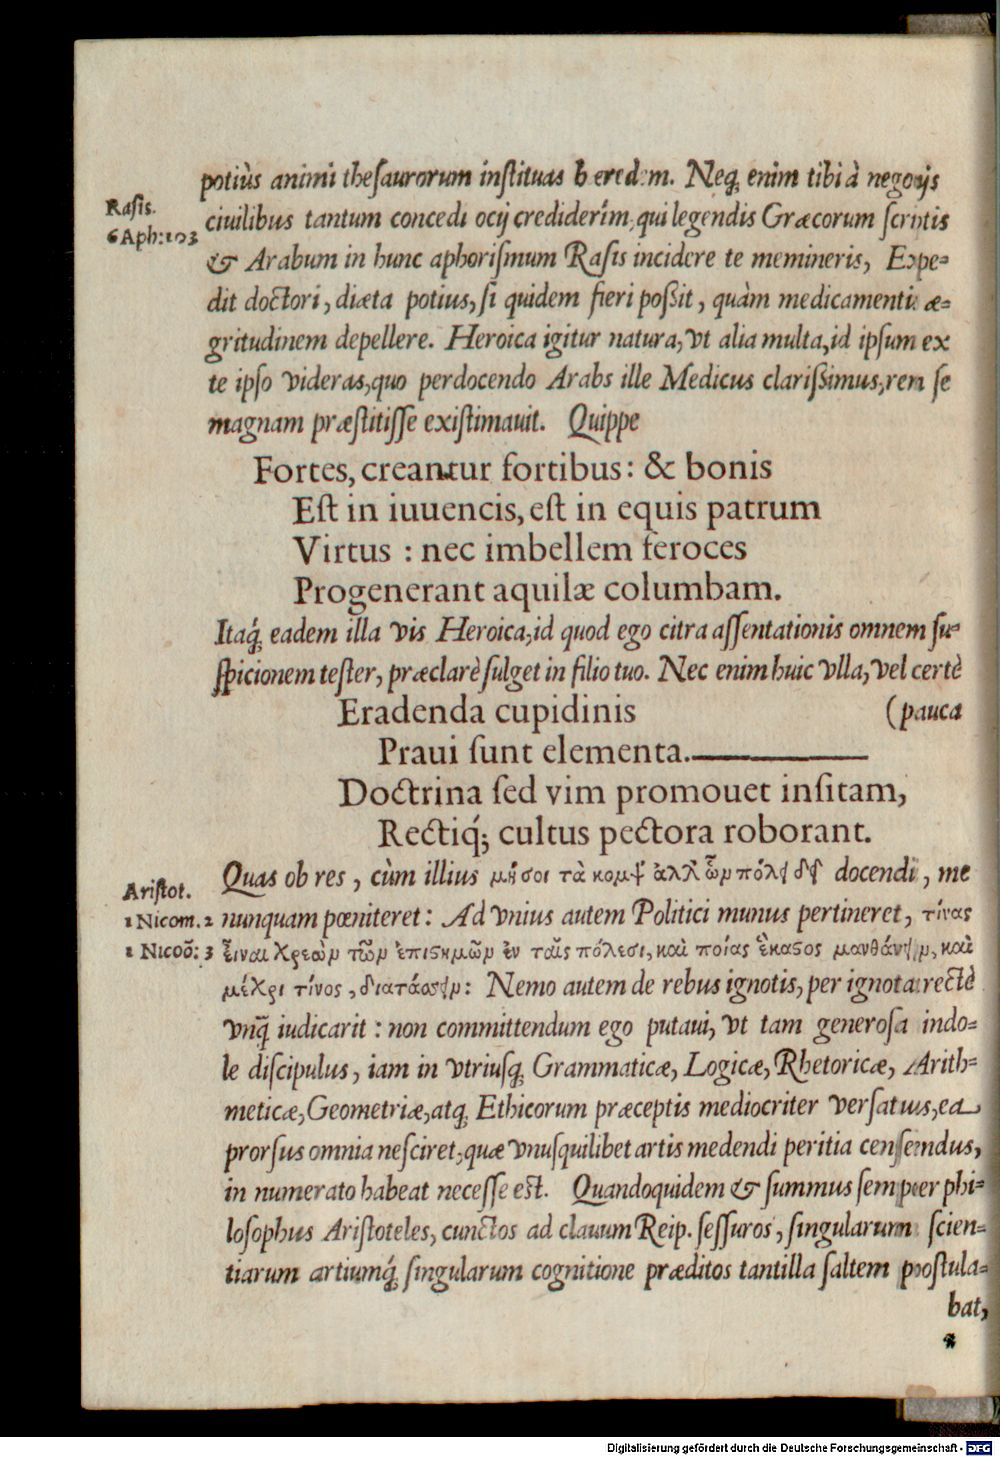 potiùs animi thesaurorum instituas heredem. Neq; enim tibi à negotijs
Rasis.
6 Aph: 103
ciuilibus tantum concedi ocij crediderim, qui legendis Græcorum scriptis
& Arabum in hunc aphorismum Rasis incidere te memineris, Expe-
dit doctori, diæta potius, si quidem fieri poßit, quàm medicamentis æ-
gritudinem depellere. Heroica igitur natura, vt alia multa, id ipsum ex
te ipso videras, quo perdocendo Arabs ille Medicus clarißimus, rem se
magnam præstitisse existimauit. Quippe
Fortes, creantur fortibus: & bonis
Est in iuuencis, est in equis patrum
Virtus : nec imbellem feroces
Progenerant aquilæ columbam.
Itaq́; eadem illa vis Heroica, id quod ego citra assentationis omnem su-
spicionem tester, præclarè fulget in filio tuo. Nec enim huic vlla, vel certè
Eradenda cupidinis (pauca
Praui sunt elementa.
Doctrina sed vim promouet insitam,
Rectiq́; cultus pectora roborant.
Quas ob res, cùm illius μή σοι τὰ κομψ' ἀλλ' ὧν πόλει δεῖ docendi, me
Aristot.
1 Nicom. 2
nunquam pœniteret: Ad vnius autem Politici munus pertineret, τίνας
1 Nicoō: 3
εἶναι χρεὼν τῶν ἐπιστημῶν ἐν ταῖς πόλεσι, καὶ ποίας ἕκαστος μανθάνειν, καὶ
μέχρι τίνος, διατάσσειν: Nemo autem de rebus ignotis, per ignota rectè
vnq̃ iudicarit : non committendum ego putaui, vt tam generosa indo-
le discipulus, iam in vtriusq; Grammaticæ, Logicæ, Rhetoricæ, Arith-
meticæ, Geometriæ, atq; Ethicorum præceptis mediocriter versatus, ea
prorsus omnia nesciret, quæ vnusquilibet artis medendi peritia censendus,
in numerato habeat necesse est. Quandoquidem & summus semper phi-
losophus Aristoteles, cunctos ad clauum Reip. sessuros, singularum scien-
tiarum artiumq́; singularum cognitione præditos tantilla saltem postula-
bat,
Digitalisierung gefördert durch die Deutsche Forschungsgemeinschaft - DFG